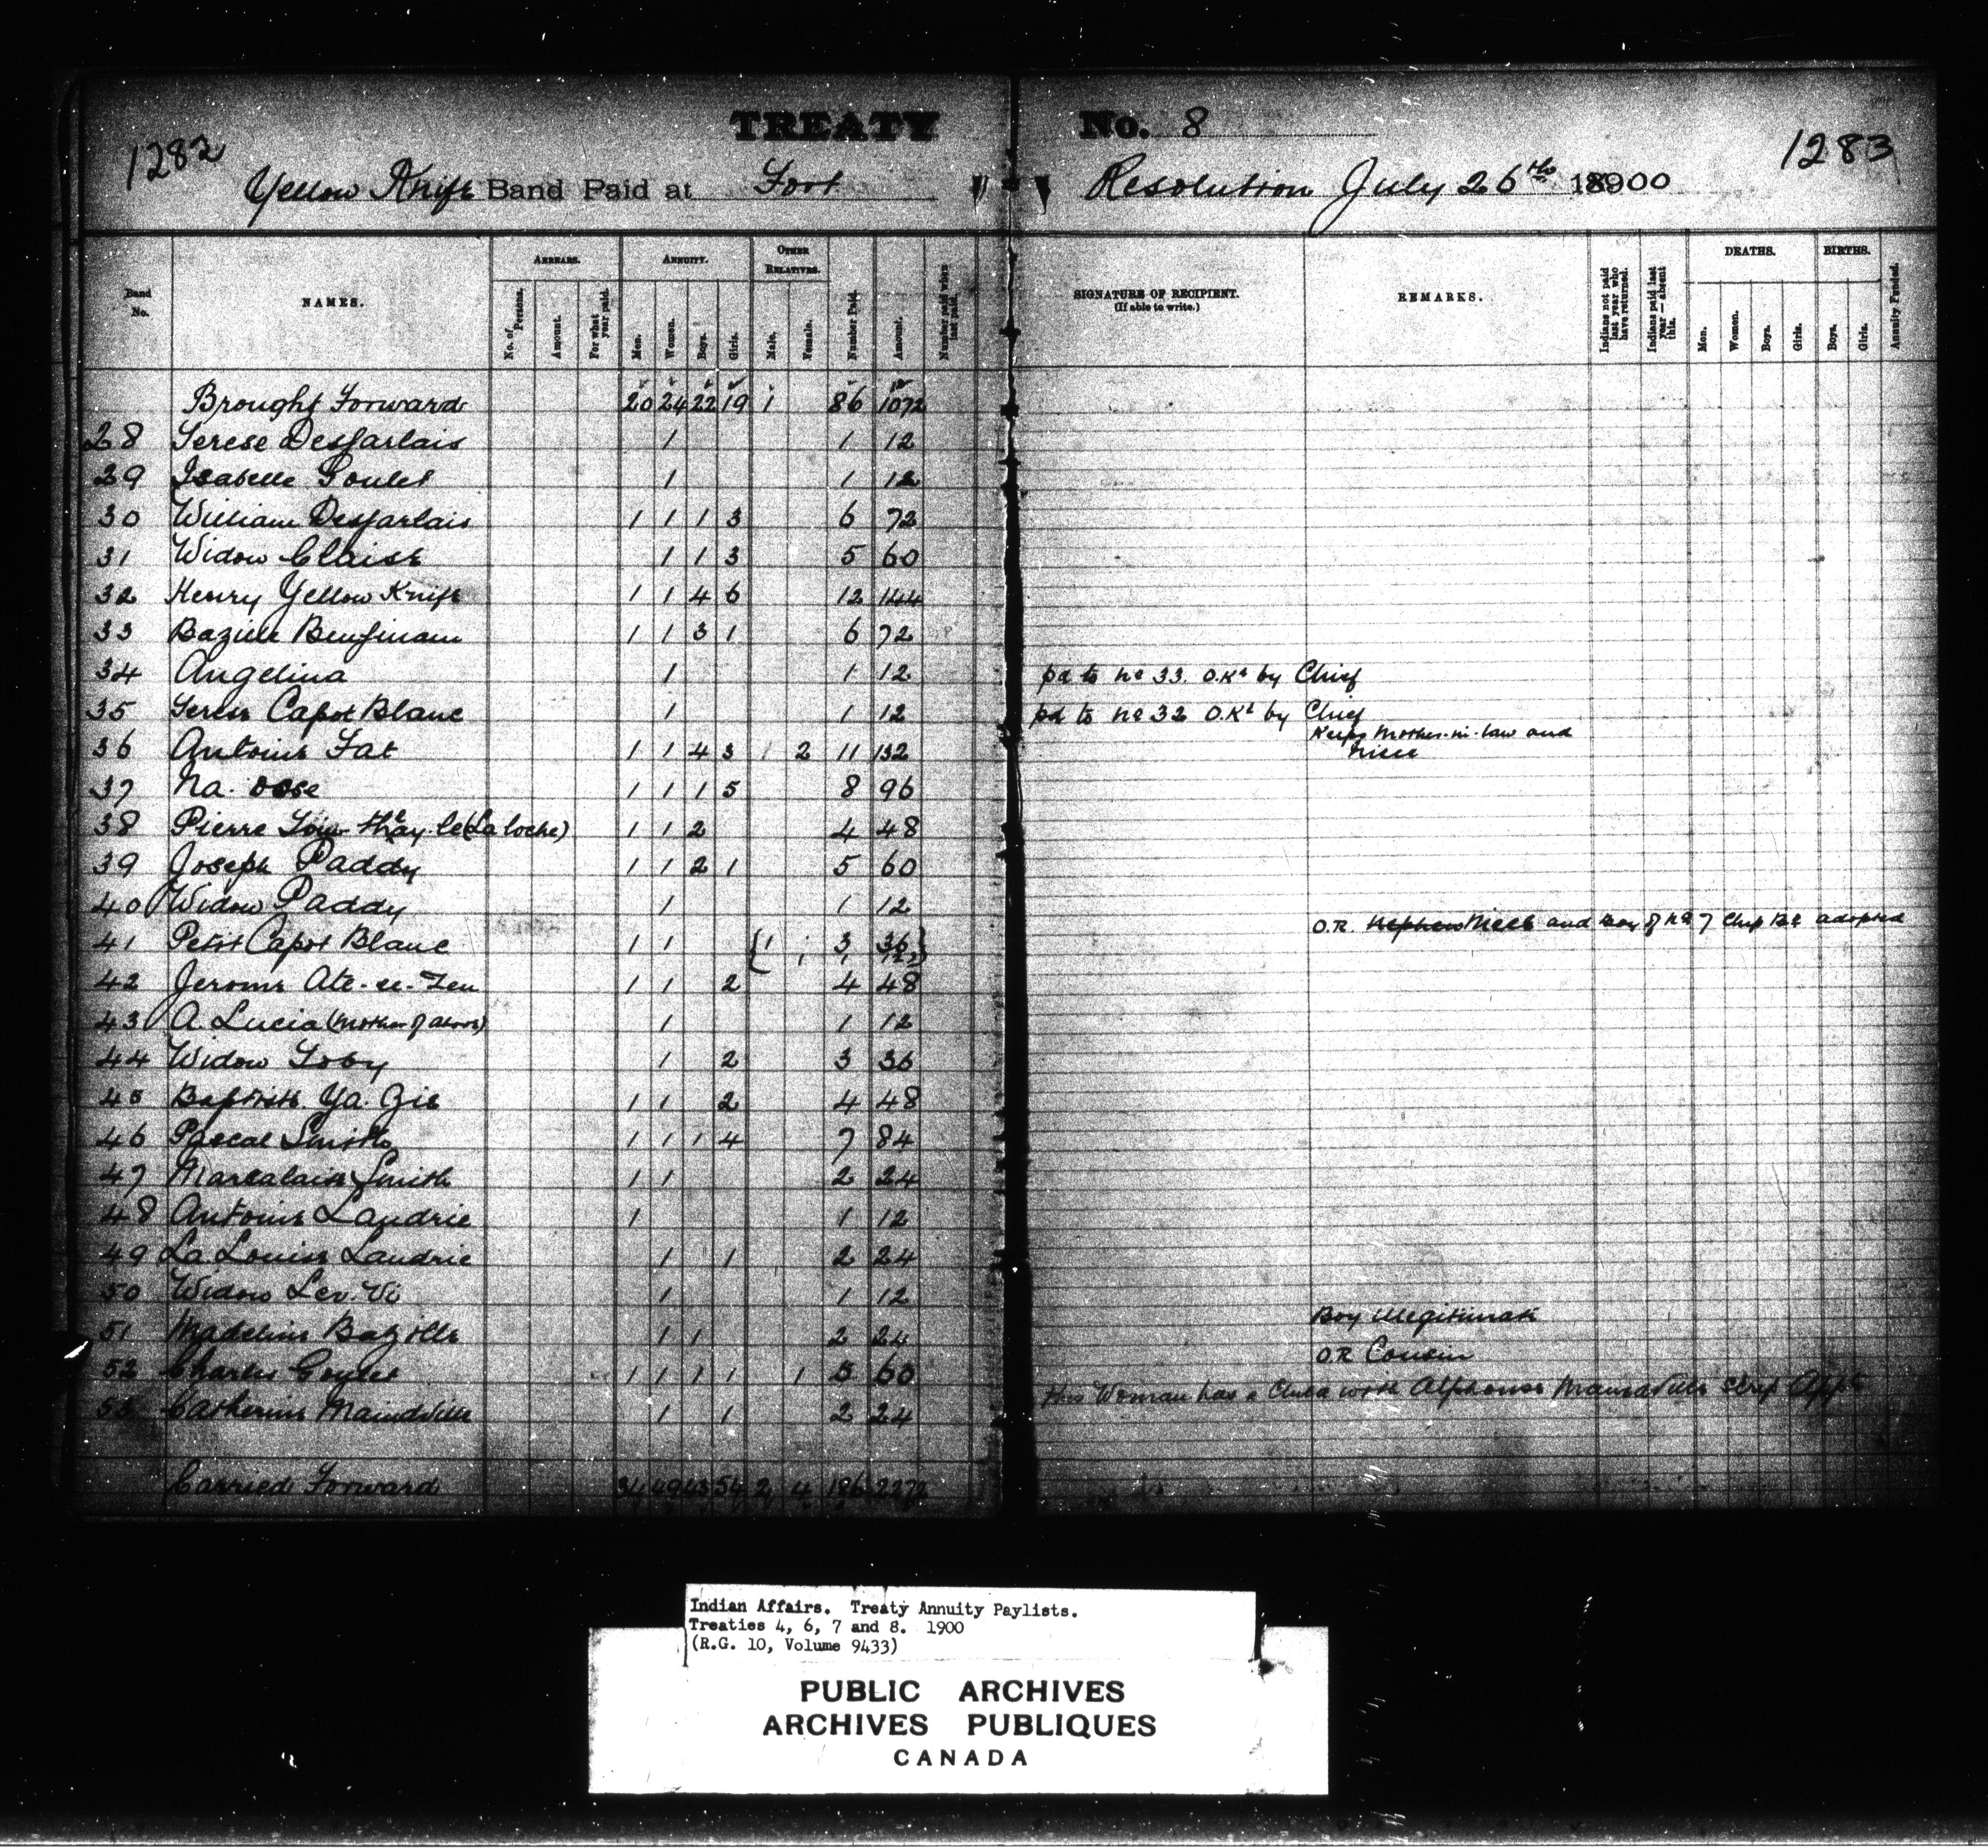 TREATY No. 8
1282
1283
Yellow Knife Band Paid at Fort Resolution July 26th 1900
Band No.
NAMES.
ARREARS.
No. of Persons.
Amount.
For what year paid.
ANNUITY.
Men.
Women.
Boys.
Girls.
OTHER RELATIVES.
Male.
Female.
Number Paid.
Amount.
Number paid when last paid.
SIGNATURE OF RECIPIENT.
(If able to write.)
REMARKS.
Indians not paid last year who have returned.
Indians paid last year—absent this.
DEATHS.
Men.
Women.
Boys.
Girls.
BIRTHS.
Boys.
Girls.
Annuity Funded.
Brought Forward 20 24 22 19 1 86 1072
28 Terese Desjarlais 1 1 12
29 Isabelle Goulet 1 1 12
30 William Desjarlais 1 1 1 3 6 72
31 Widow Claise 1 1 3 5 60
32 Henry Yellow Knife 1 1 4 6 12 144
33 Bazile Benjinam 1 1 3 1 6 72
34 Angelina 1 1 12 pd to No 33. O.Kd by Chief
35 Capot Blanc 1 1 12 pd to No 32 O.Kd by Chief
Keeps Mother-in-law and
36 Antoine Fat 1 1 4 3 2 11 132 Niece
37 Na. 1 1 1 5 8 96
38 Pierre (La loche) 1 1 2 4 48
39 Joseph Paddy 1 1 2 1 5 60
40 Widow Paddy 1 1 12
O.R. Nephew Niece and Boy of No 7 Chip Bd adopted
41 Petit Capot Blanc 1 1 { 1 3 36 }
1 1 12
42 Jerome Ate-ee-Zeu 1 1 2 4 48
43 A. Lucia (Mother of above) 1 1 12
44 Widow Toby 1 2 3 36
45 Baptiste Ya. Zie 1 1 2 4 48
46 Pascal Smith 1 1 1 4 7 84
47 Smith 1 1 2 24
48 Antoine Laudrie 1 1 12
49 La Louise Laudrie 1 1 2 24
50 Widow Lev. Vi 1 1 12
Boy illegitimate
51 Madeline Bazille 1 1 2 24
O.R Cousin
52 Charles Goulet 1 1 1 1 1 5 60
This Woman has a Child with Alphonse Mandeville Scrip Appt
53 Catherine Maindville 1 1 2 24
Carried Forward 34 49 43 54 2 4 186 2272
Indian Affairs. Treaty Annuity Paylists.
Treaties 4, 6, 7 and 8. 1900
(R.G. 10, Volume 9433)
PUBLIC ARCHIVES
ARCHIVES PUBLIQUES
CANADA